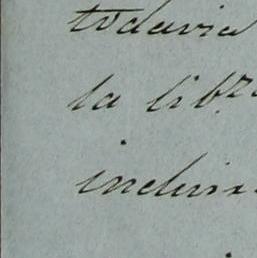 todavia
la libr
inclus